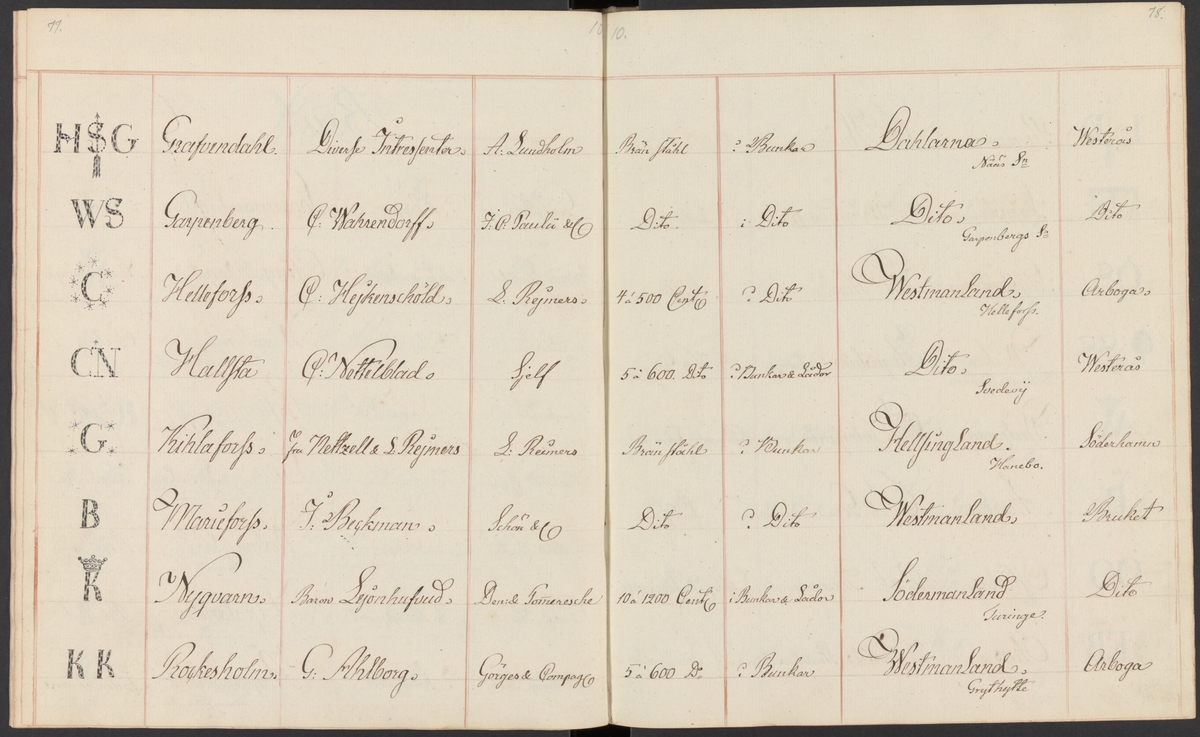 77.
10.
78.
HSG Grafvendahl. Diverse Intressenter. A: Lundholm Brän Stähl ? Bunkar Dahlarna. Westerås
Näås Sn
WS Garpenberg. C: Wahrendorff. J: C: Pauli & C Dito. i Dito Dito. Dito
Garpenbergs Sn
C Helleforss. C: Heykenschöld. L. Reymers. 4 á 500 Cent ? Dito Westmanland. Arboga.
Helleforss.
CN Hallsta C: Nettelblad. Sjelf 5 á 600 Dito ? Bunkar & Lådor Dito. Westerås
Svedevij
G Kihlaforss. fru Nettzell & L. Reymers L: Reimers Brän Stähl ? Bunkar Helsingland. Söderhamn
Hanebo.
B Marieforss. J: Beckman. Schön & C Dito ? Dito Westmanland. Bruket
K Nyqvarn. Baron Lejonhufvud. Den: & Tomeresche 10 á 1200 Cent i Bunkar & Lådor Södermanland Dito
Turinge.
KK Rockesholm. G: Ahlborg. Görges & Compag 5 á 600 Do ? Bunkar Westmanland. Arboga
Grythytte